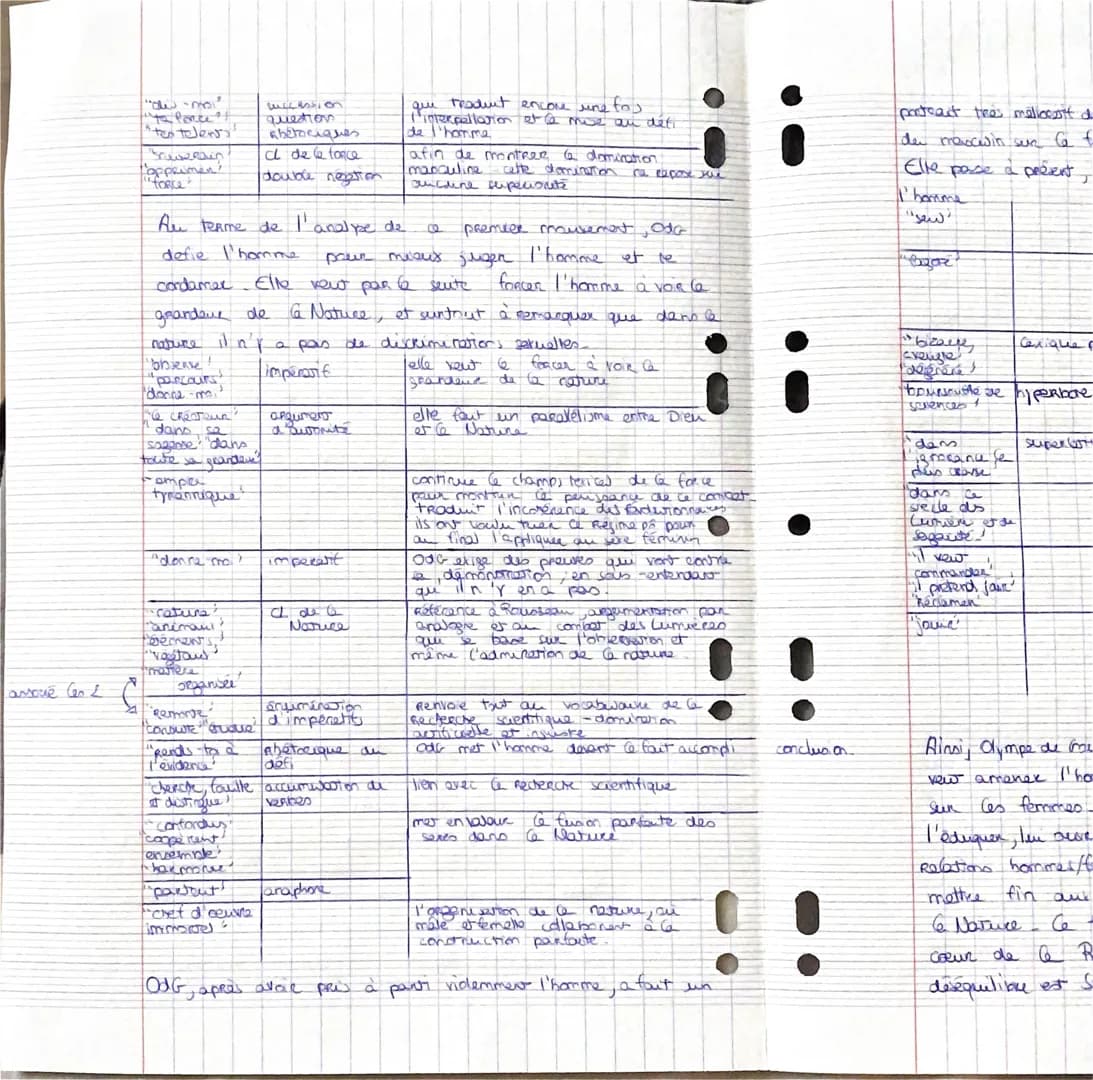 "dis-moi" succession qui traduit encore une fois
"ta force" question l'interpellation et la mise au défi
"tes talents" rhétoriques de l'homme
"souverain" CL de la force afin de montrer la domination
"opprimer" double négation masculine cette domination ne repose sur
"force" aucune supériorité
Au terme de l'analyse de ce premier mouvement, OdG
défie l'homme pour mieux juger l'homme et le
condamner. Elle veut par la suite forcer l'homme à voir la
grandeur de la Nature, et surtout à remarquer que dans la
nature il n'y a pas de discriminations sexuelles.
"observe" impératif elle veut le forcer à voir la
"parcours" grandeur de la nature
"donne-moi"
"le créateur" argument elle fait un parallélisme entre Dieu
"dans sa d'autorité et la Nature
sagesse" "dans
toute sa grandeur"
"empire continue le champs lexical de la force
tyrannique" pour montrer la puissance de ce combat
traduit l'incohérence des
ils ont voulu tuer ce Régime pô pour
au final l'appliquer au sexe féminin
"donne moi" impératif OdG exige des preuves qui vont contre
sa démonstration, en sous-entendant
qu'il n'y en a pas.
"nature" CL de la Référence à Rousseau, argumentation par
"animaux" Nature analogie et au combat des Lumières
"éléments" qui se base sur l'observation et
"végétaux" même l'admiration de la nature.
"matière
organisée"
associé les 2
"Remonte" énumération Renvoie tout au vocabulaire de la
"consulte" "étudie" d'impératifs Recherche scientifique - domination
artificielle et injuste
"rends-toi à Rhétorique du OdG met l'homme devant le fait accompli
l'évidence" défi
"cherche, fouille accumulation de lien avec la recherche scientifique
et distingue" verbes
"confondus" met en valeur la fusion parfaite des
"coopèrent" sexes dans la Nature
ensemble"
"harmonie"
"partout" anaphore
"chef d'oeuvre l'organisation de la nature, où
immortel" mâle et femelle collaborent à la
construction parfaite.
OdG, après avoir pris à parti videmment l'homme, a fait un
portrait très mélioratif d
du masculin sur la f
Elle passe à présent,
l'homme
"seul"
"bizarre, lexique p
aveugle"
"dégénéré"
"boursouflé de hyperbole
sciences"
"dans superlati
l'ignorance la
plus crasse"
"dans ce
siècle des
Lumière et de
sagacité"
"il veut
commander"
"il prétend jouir"
"Réclamer"
"jouir"
conclusion
Ainsi, Olympe de Gou
veut amener l'ho
sur les femmes.
l'éduquer, lui ouvr
Relations hommes/f
mettre fin aux
la Nature. Ce
coeur de la R
déséquilibre est s